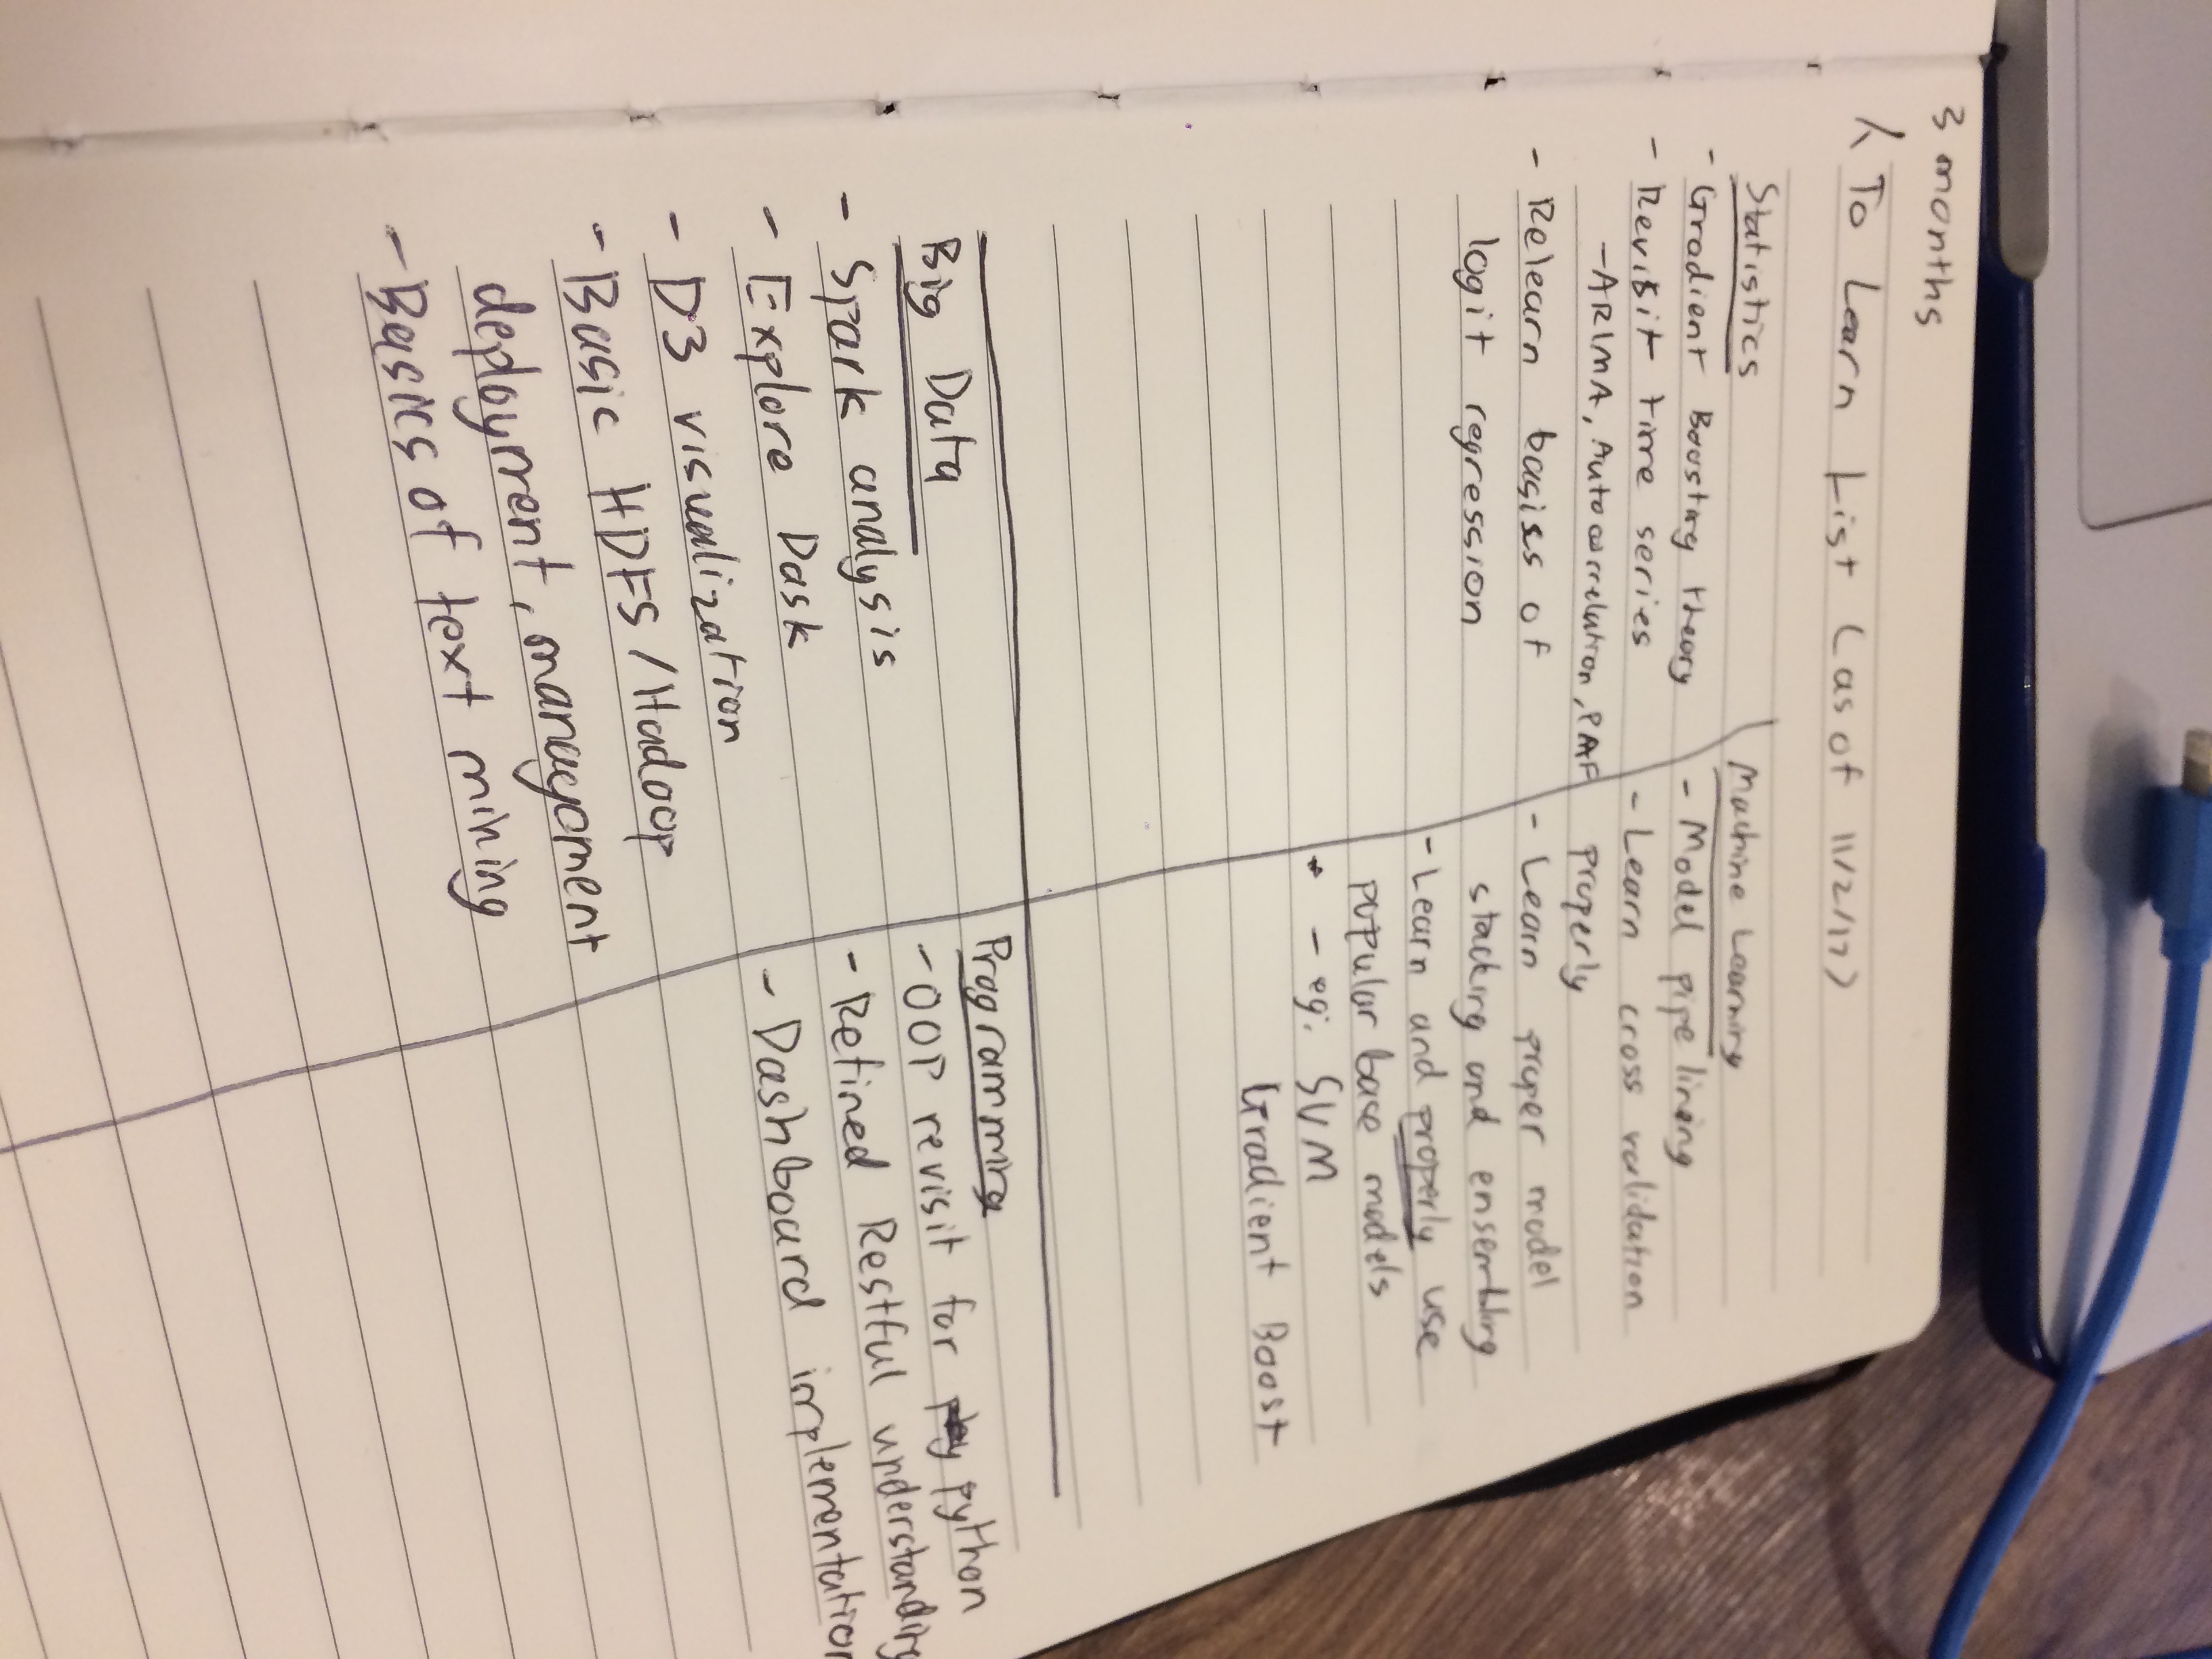 3 months
To Learn List (as of 11/2/17)
Statistics
- Gradient Boosting theory
- Revisit time series
- ARIMA, Autocorrelation, PAF
- Relearn basiss of
logit regression
Machine Learning
- Model pipelining
- Learn cross validation
properly
- Learn proper model
stacking and ensembling
- Learn and properly use
popular base models
* - eg. SVM
Gradient Boost
Big Data
- Spark analysis
- Explore Dask
- D3 visualization
- Basic HDFS/Hadoop
deployment, management
- Basics of text mining
Programming
- OOP revisit for python
- Refined Restful understanding
- Dashboard implementation